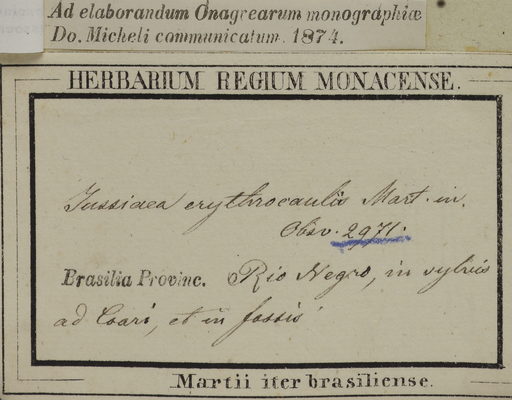 Ad elaborandum Onagrearum monographiæ
Do. Micheli communicatum. 1874.
HERBARIUM REGIUM MONACENSE.
Jussiaea erythrocaulis Mart. in.
Obsv. 2971.
Brasilia Provinc. Rio Negro, in sylvis
ad Coari, et in fossis
Martii iter brasiliense.